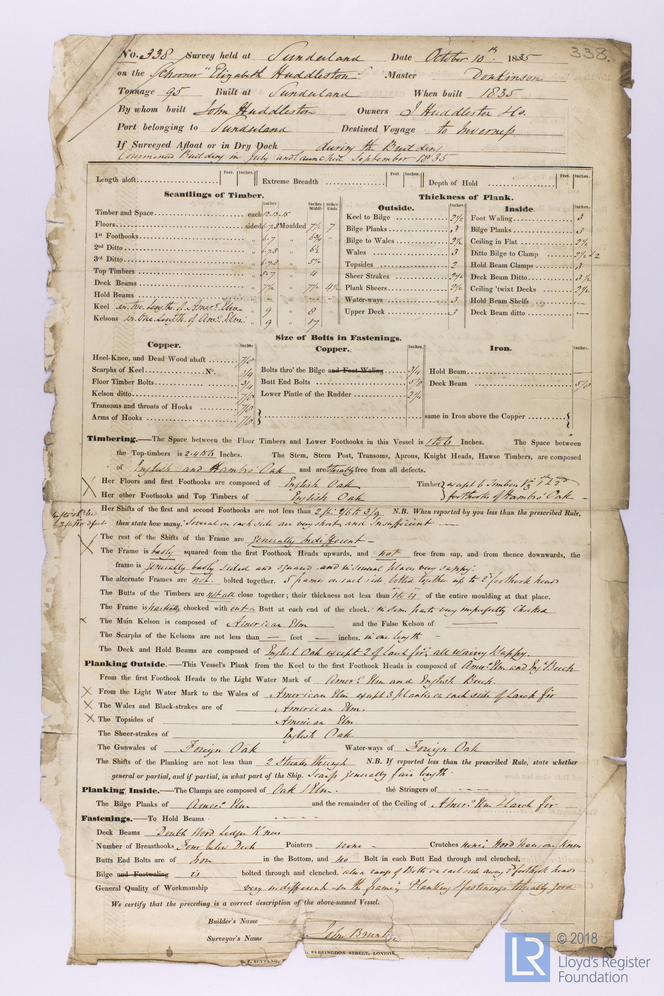 No. 338 Survey held at Sunderland Date October 10th 1835
338.
on the Schooner "Elizabeth Huddleston" Master Donkinson
Tonnage 95 Built at Sunderland When built 1835
By whom built John Huddleston Owners J Huddleston & Co.
Port belonging to Sunderland Destined Voyage to Inverness
If Surveyed Afloat or in Dry Dock during the Building
Commenced Building in July and launched September 1835
Length aloft Feet. Inches. Extreme Breadth Feet. Inches. Depth of Hold Feet. Inches.
Scantlings of Timber.
Timber and Space each
Floors sided Moulded
1st Foothooks
2nd Ditto
3rd Ditto
Top Timbers
Deck Beams
Hold Beams
Keel in two lengths of Amer. Elm 9 8
Kelsons in one length of Amer. Elm 9
Thickness of Plank.
Outside.
Keel to Bilge 2½
Bilge Planks 3
Bilge to Wales 2½
Wales 3
Topsides 2
Sheer Strakes 2½
Plank Sheers 2½
Water-ways 3
Upper Deck 3
Inside.
Foot Waling 3
Bilge Planks 3
Ceiling in Flat 2½
Ditto Bilge to Clamp
Hold Beam Clamps 3
Deck Beam Ditto
Ceiling 'twixt Decks
Hold Beam Shelfs —
Deck Beam ditto —
Size of Bolts in Fastenings.
Copper.
Heel-Knee, and Dead Wood abaft 7/8
Scarphs of Keel No. 3/4
Floor Timber Bolts 3/4
Kelson ditto 7/8
Transoms and throats of Hooks 7/8
Arms of Hooks
Copper.
Bolts thro' the Bilge and Foot Waling 3/4
Butt End Bolts 5/8
Lower Pintle of the Rudder
Iron.
Hold Beam
Deck Beam 5/8
same in Iron above the Copper
Timbering.—The Space between the Floor Timbers and Lower Foothooks in this Vessel is 1 to 6 Inches. The Space between
the Top-timbers is 2.4 to 6 Inches. The Stem, Stern Post, Transoms, Aprons, Knight Heads, Hawse Timbers, are composed
of English and Hambro Oak and are free from all defects.
Her Floors and first Foothooks are composed of English Oak Timber except 6 Timbers
Her other Foothooks and Top Timbers of English Oak foothooks of Hambro Oak
Her Shifts of the first and second Foothooks are not less than N.B. When reported by you less than the prescribed Rule,
then state how many. Several on each side are very short and Insufficient
The rest of the Shifts of the Frame are generally Indifferent
The Frame is badly squared from the first Foothook Heads upwards, and not free from sap, and from thence downwards, the
frame is generally badly sided and squared and in several places very sappy.
The alternate Frames are not bolted together. 5 frame on each side bolted together up to 2d foothook heads
The Butts of the Timbers are not all close together; their thickness not less than of the entire moulding at that place.
The Frame is partially chocked with out a Butt at each end of the chock: in some parts very imperfectly Chocked
The Main Kelson is composed of American Elm and the False Kelson of
The Scarphs of the Kelsons are not less than — feet — inches. in one length
The Deck and Hold Beams are composed of English Oak except 2 of larch fir, all wainy & sappy.
Planking Outside.—This Vessel's Plank from the Keel to the first Foothook Heads is composed of Amer. Elm and Eng. Beech
From the first Foothook Heads to the Light Water Mark of Amer. Elm and English Beech.
From the Light Water Mark to the Wales of American Elm except 3 planks on each side of Larch fir
The Wales and Black-strakes are of American Elm.
The Topsides of American Elm
The Sheer-strakes of English Oak
The Gunwales of Foreign Oak Water-ways of Foreign Oak
The Shifts of the Planking are not less than 2 Strakes through N.B. If reported less than the prescribed Rule, state whether
general or partial, and if partial, in what part of the Ship. Scarfs generally fair length
Planking Inside.—The Clamps are composed of Oak & Elm. the Stringers of
The Bilge Planks of Amer. Elm and the remainder of the Ceiling of Amer. Elm & Larch fir
Fastenings.—To Hold Beams
Deck Beams Double Wood Ledge Knees
Number of Breasthooks Four below Deck Pointers none Crutches
Butts End Bolts are of Iron in the Bottom, and no Bolt in each Butt End through and clenched,
Bilge and Footwaling is bolted through and clenched.
General Quality of Workmanship very indifferent in the framing Planking & fastenings tolerably good
We certify that the preceding is a correct description of the above-named Vessel.
Builder's Name
Surveyor's Name John Brunton
FARRINGDON STREET, LONDON.
LR © 2018
Lloyd's Register
Foundation